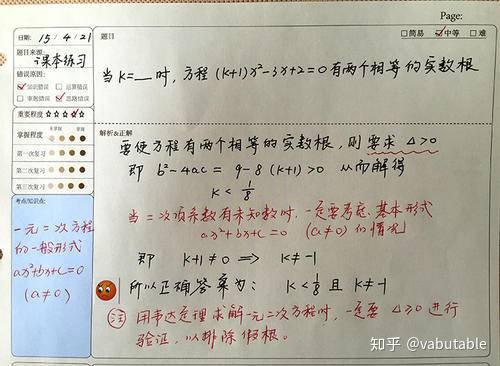 Page:
日期: 15 / 4 / 21
题目来源:
课本练习
错误原因:
知识错误 运算错误
审题错误 思路错误
重要程度 ☆☆☆☆☆
掌握程度
第一次复习
第二次复习
第三次复习
考点/知识点:
一元二次方程
的一般形式
ax²+bx+c=0
(a≠0)
题目
□简易 中等 □难
当 k=__时, 方程 (k+1)x²-3x+2=0 有两个相等的实数根
解析&正解
要使方程有两个相等的实数根, 则要求 △>0
即 b²-4ac = 9-8(k+1)>0 从而解得
k < 1/8
当二次项系数有未知数时, 一定要考虑基本形式
ax²+bx+c=0 (a≠0) 的情况
即 k+1≠0 ⟹ k≠-1
所以正确答案为: k<1/8 且 k≠-1
注 用韦达定理求解一元二次方程时, 一定要 △≥0 进行
验证, 以排除假根.
知乎 @vabutable